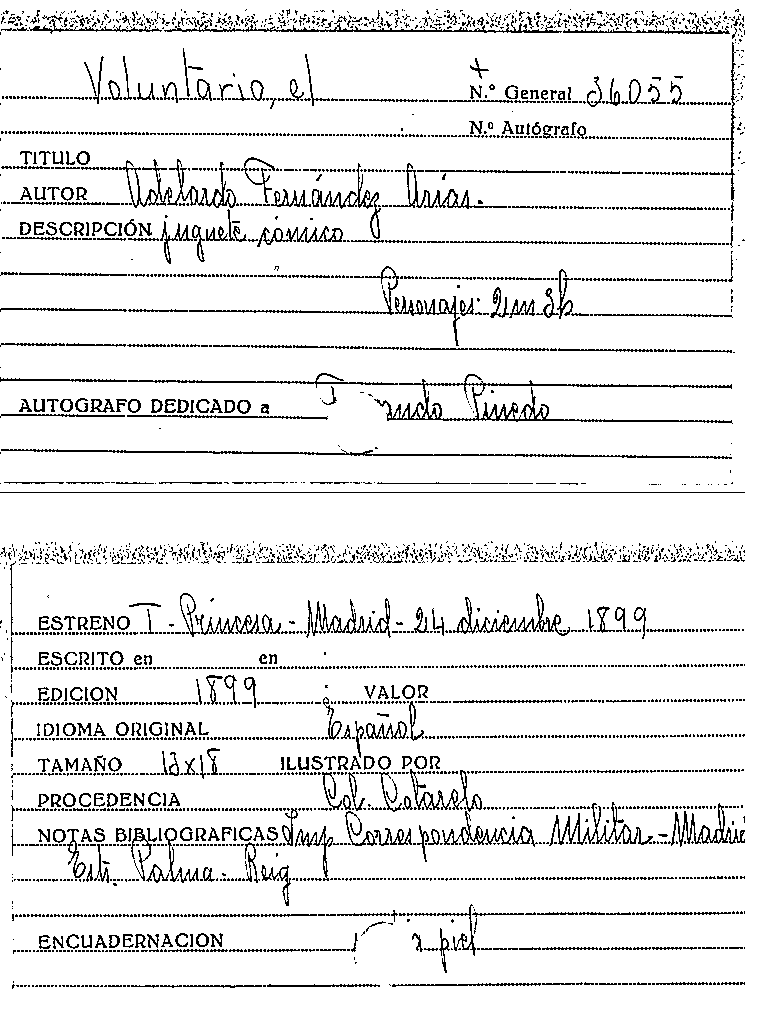 Voluntario, el
N.º General 36055
N.º Autógrafo
TITULO
AUTOR Adelardo Fernández Arias.
DESCRIPCIÓN juguete cómico
Personajes: 2m 3h
AUTOGRAFO DEDICADO a Pinedo
ESTRENO T - Princesa - Madrid - 24 diciembre 1899
ESCRITO en en
EDICION 1899 VALOR
IDIOMA ORIGINAL Español
TAMAÑO 13x18 ILUSTRADO POR
PROCEDENCIA Col. Cotarelo
NOTAS BIBLIOGRAFICAS Imp Correspondencia Militar - Madri
Palma - Reig
ENCUADERNACION piel